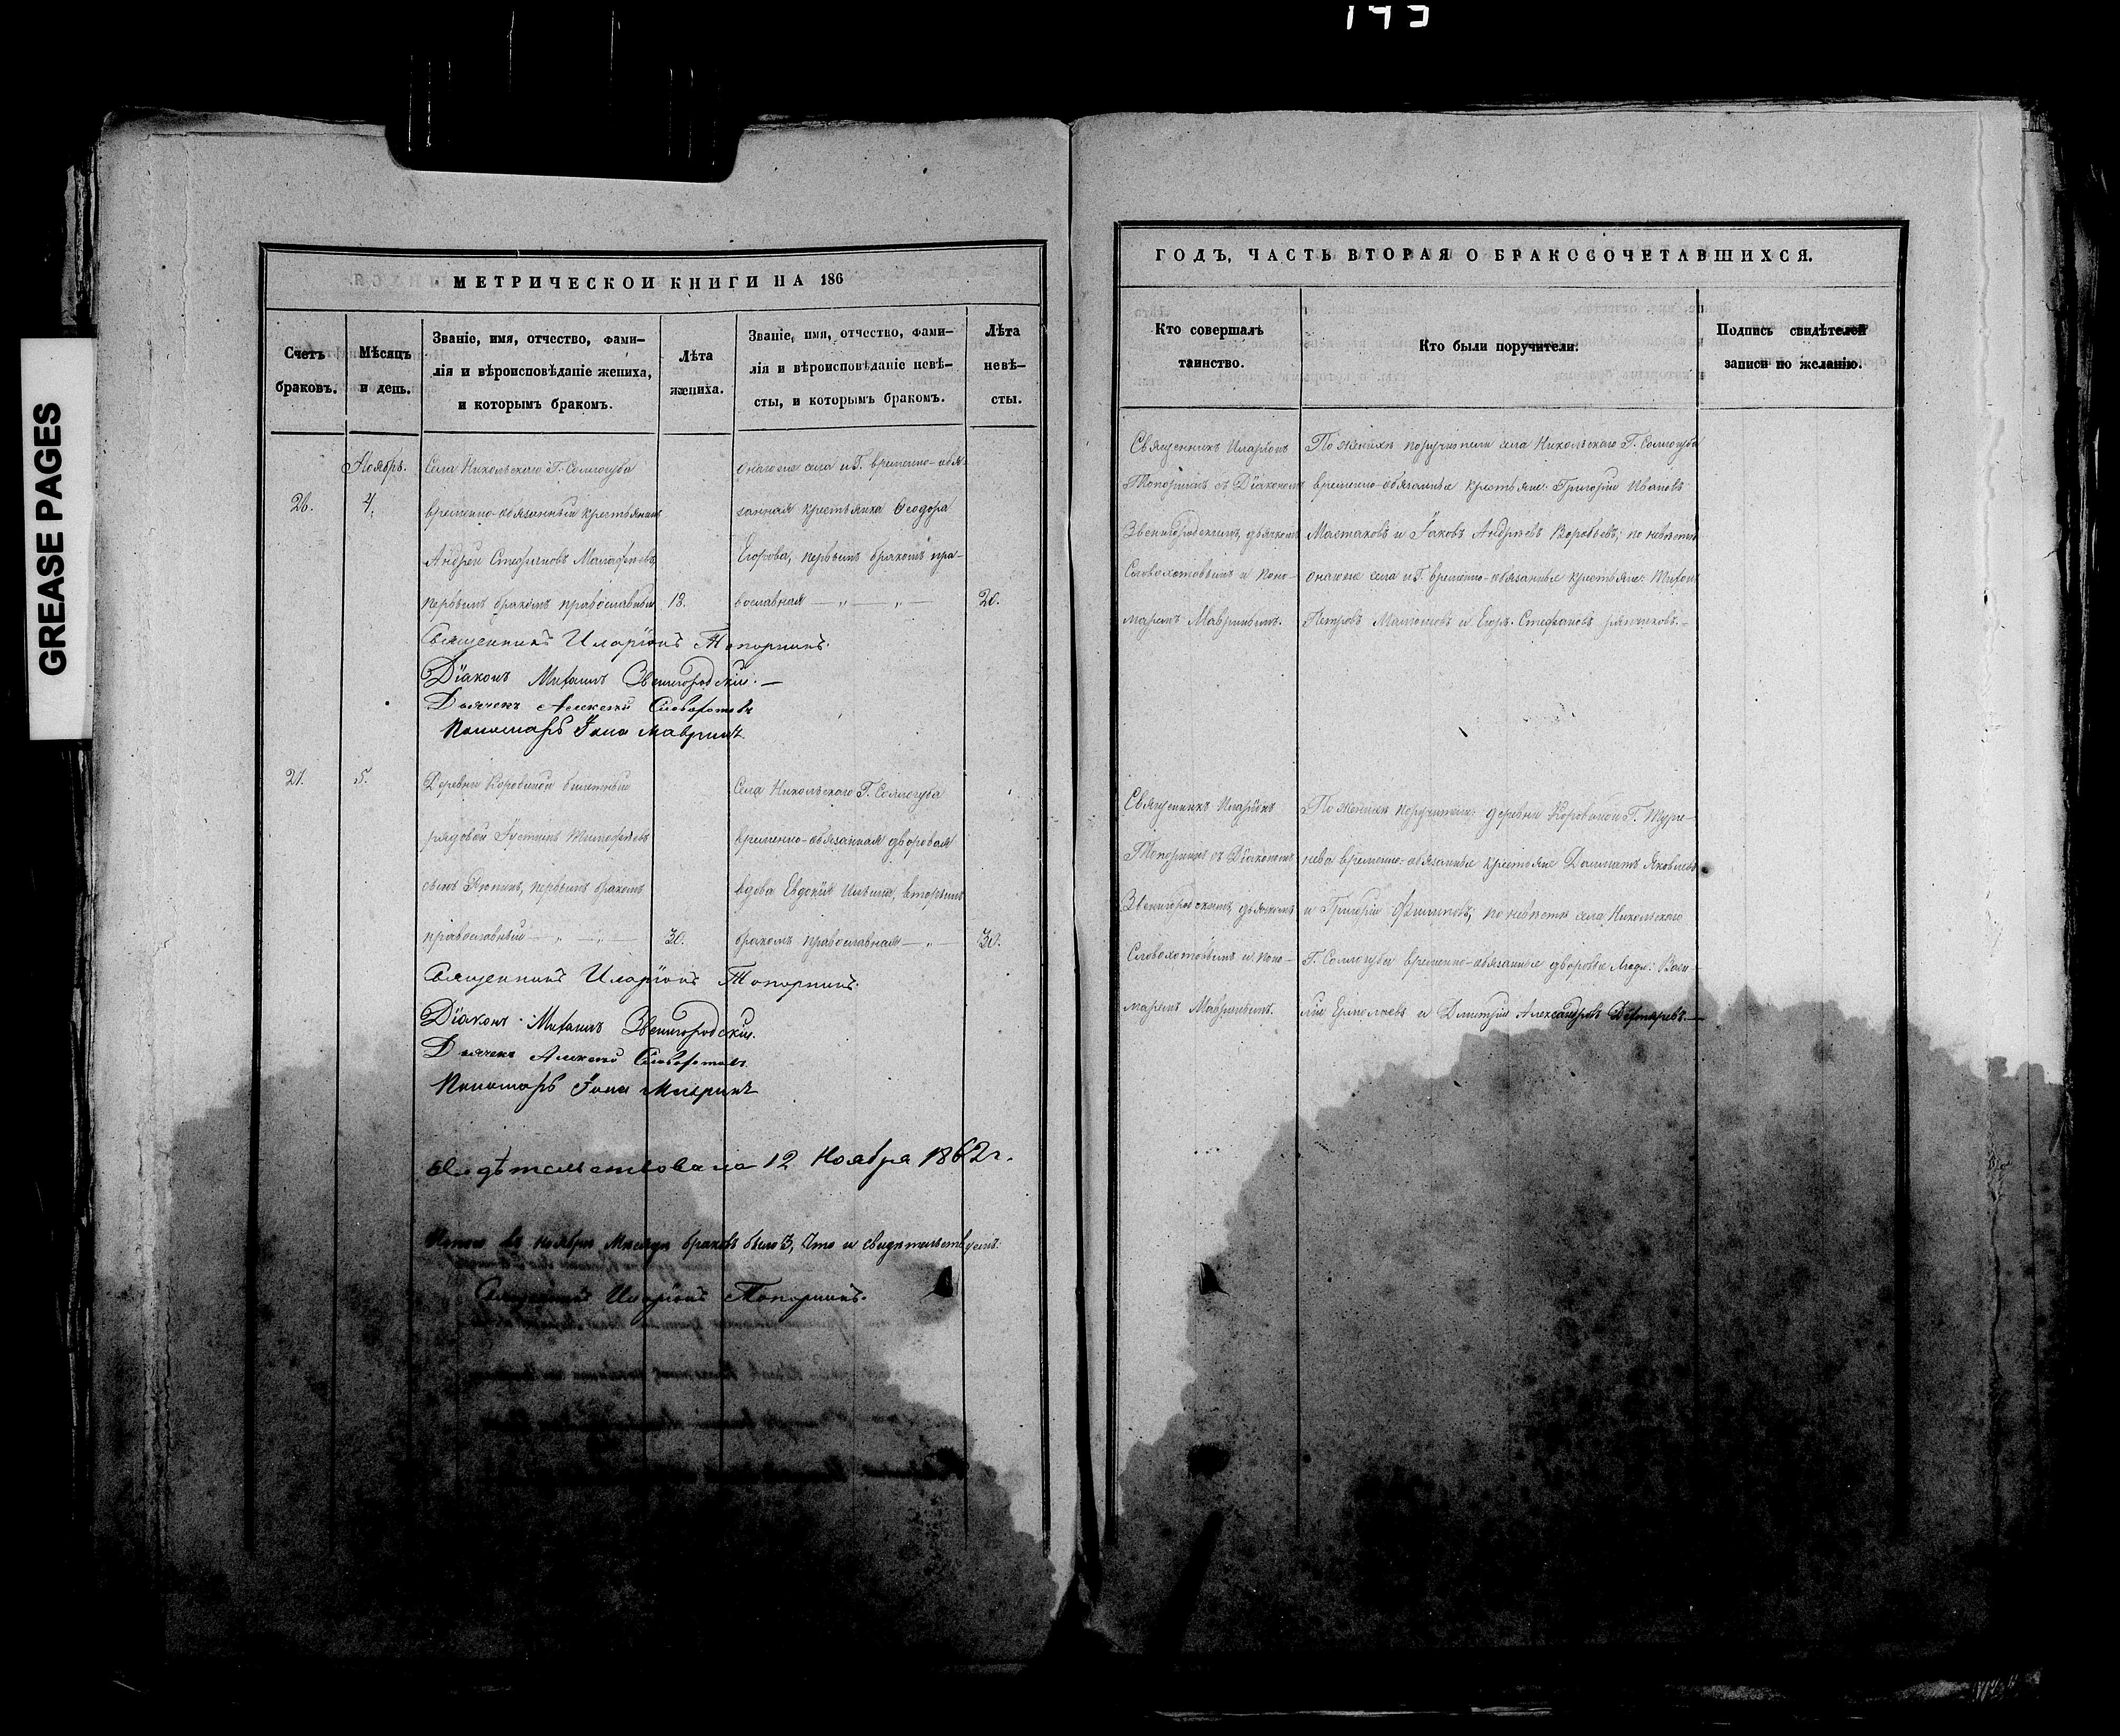 143
GREASE PAGES
МЕТРИЧЕСКОЙ КНИГИ НА 186
Счетъ браковъ.
Мѣсяцъ и день.
Званіе, имя, отчество, фами-
лія и вѣроисповѣданіе жениха,
и которымъ бракомъ.
Лѣта
жениха.
Званіе, имя, отчество, фами-
лія и вѣроисповѣданіе невѣ-
сты, и которымъ бракомъ.
Лѣта
невѣ-
сты.
Ноябрь.
26.
4.
Села Никольскаго Г. Соллогуба
временно-обязанный крестьянинъ
Андрей Стефановъ
первымъ бракомъ православный
18.
онаго же села и Г. временно-обя-
занная крестьянка Ѳеодора
Егорова, первымъ бракомъ пра-
вославная — „ — „ —
20.
Священникъ Иларіонъ Топорнинъ.
Діаконъ Михаилъ Звенигородскій. —
Дьячекъ Алексѣй Словохотовъ
Пономарь Іона Мавринъ
27.
5.
Деревни Коровиной билетный
рядовой Іустинъ Тимофеевъ
сынъ первымъ бракомъ
православный — „ — „ —
30.
Села Никольскаго Г. Соллогуба
временно-обязанная дворовая
вдова Евдокія Ильина, вторымъ
бракомъ православная — „ —
30.
Священникъ Иларіонъ Топорнинъ.
Діаконъ Михаилъ Звенигородскій.
Дьячекъ Алексѣй Словохотовъ
Пономарь Іона Мавринъ
Свидѣтельствовано 12 Ноября 1862 г.
Итого въ ноябрѣ мѣсяцѣ браковъ было 3, что и свидѣтельствуемъ.
Священникъ Иларіонъ Топорнинъ.
ГОДЪ, ЧАСТЬ ВТОРАЯ О БРАКОСОЧЕТАВШИХСЯ.
Кто совершалъ
таинство.
Кто были поручители.
Подпись свидѣтелей
записи по желанію.
Священникъ Иларіонъ
Топорнинъ съ Діакономъ
Звенигородскимъ, дьячкомъ
Словохотовымъ и поно-
маремъ Мавринымъ.
По женихѣ поручители села Никольскаго Г. Соллогуба
временно-обязанные крестьяне: Григорій Ивановъ
Мастаковъ и Іаковъ Андреевъ Воробьевъ; по невѣстѣ
онаго же села и Г. временно-обязанные крестьяне:
Петровъ и Егоръ Стефановъ
Священникъ Иларіонъ
Топорнинъ съ Діакономъ
Звенигородскимъ, дьячкомъ
Словохотовымъ и поно-
маремъ Мавринымъ.
По женихѣ поручители: деревни Коровиной Г. Турге-
нева временно-обязанные крестьяне Далматъ Яковлевъ
и Григорій Филиповъ; по невѣстѣ села Никольскаго
Г. Соллогуба временно-обязанные дворовые люди: Васи-
лій Ермолаевъ и Дмитрій Александровъ Дехтяревъ. —